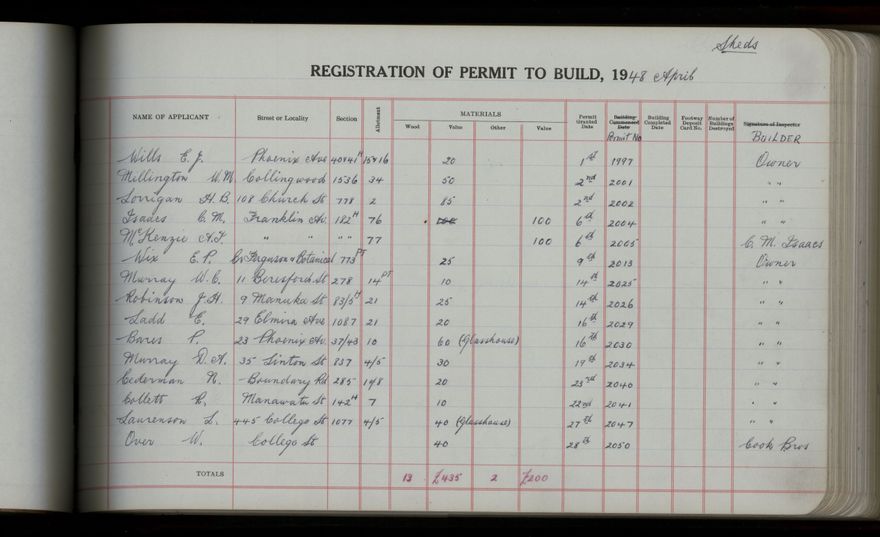 Sheds
REGISTRATION OF PERMIT TO BUILD, 1948 April
NAME OF APPLICANT Street or Locality Section Allotment MATERIALS Permit Granted Date Building Commenced Date Building Completed Date Footway Deposit Card No. Number of Buildings Destroyed Signature of Inspector
Wood Value Other Value Permit No BUILDER
Wills E. J. Phoenix Ave 40+41 H 15+16 20 1st 1997 Owner
Millington W.M. Collingwood 1536 34 50 2nd 2001 " "
Lorrigan H.B. 108 Church St 778 2 85 2nd 2002 " "
Isaacs C.M. Franklin Av. 182 H 76 100 6th 2004 " "
McKenzie A.F. " " " " 77 100 6th 2005 C. M. Isaacs
Wix E.P. Cr Ferguson & Botanical 773 PT 25 9th 2013 Owner
Murray W.C. 11 Beresford St 278 14 PT 10 14th 2025 " "
Robinson J.H. 9 Manuka St 83/5 H 21 25 14th 2026 " "
Ladd E. 29 Elmira Ave 1087 21 20 16th 2029 " "
Bares P. 23 Phoenix Av. 37/43 10 60 (Glasshouse) 16th 2030 " "
Murray D.A. 35 Linton St 837 4/5 30 19th 2034 " "
Cederman N. Boundary Rd 285 20 23rd 2040 " "
Collett R. Manawatu St 142 H 7 10 22nd 2041 " "
Laurenson L. 445 College St 1077 4/5 40 (Glasshouse) 27th 2047 " "
Over W. College St. 40 28th 2050 Cook Bros
TOTALS 13 £435 2 £200